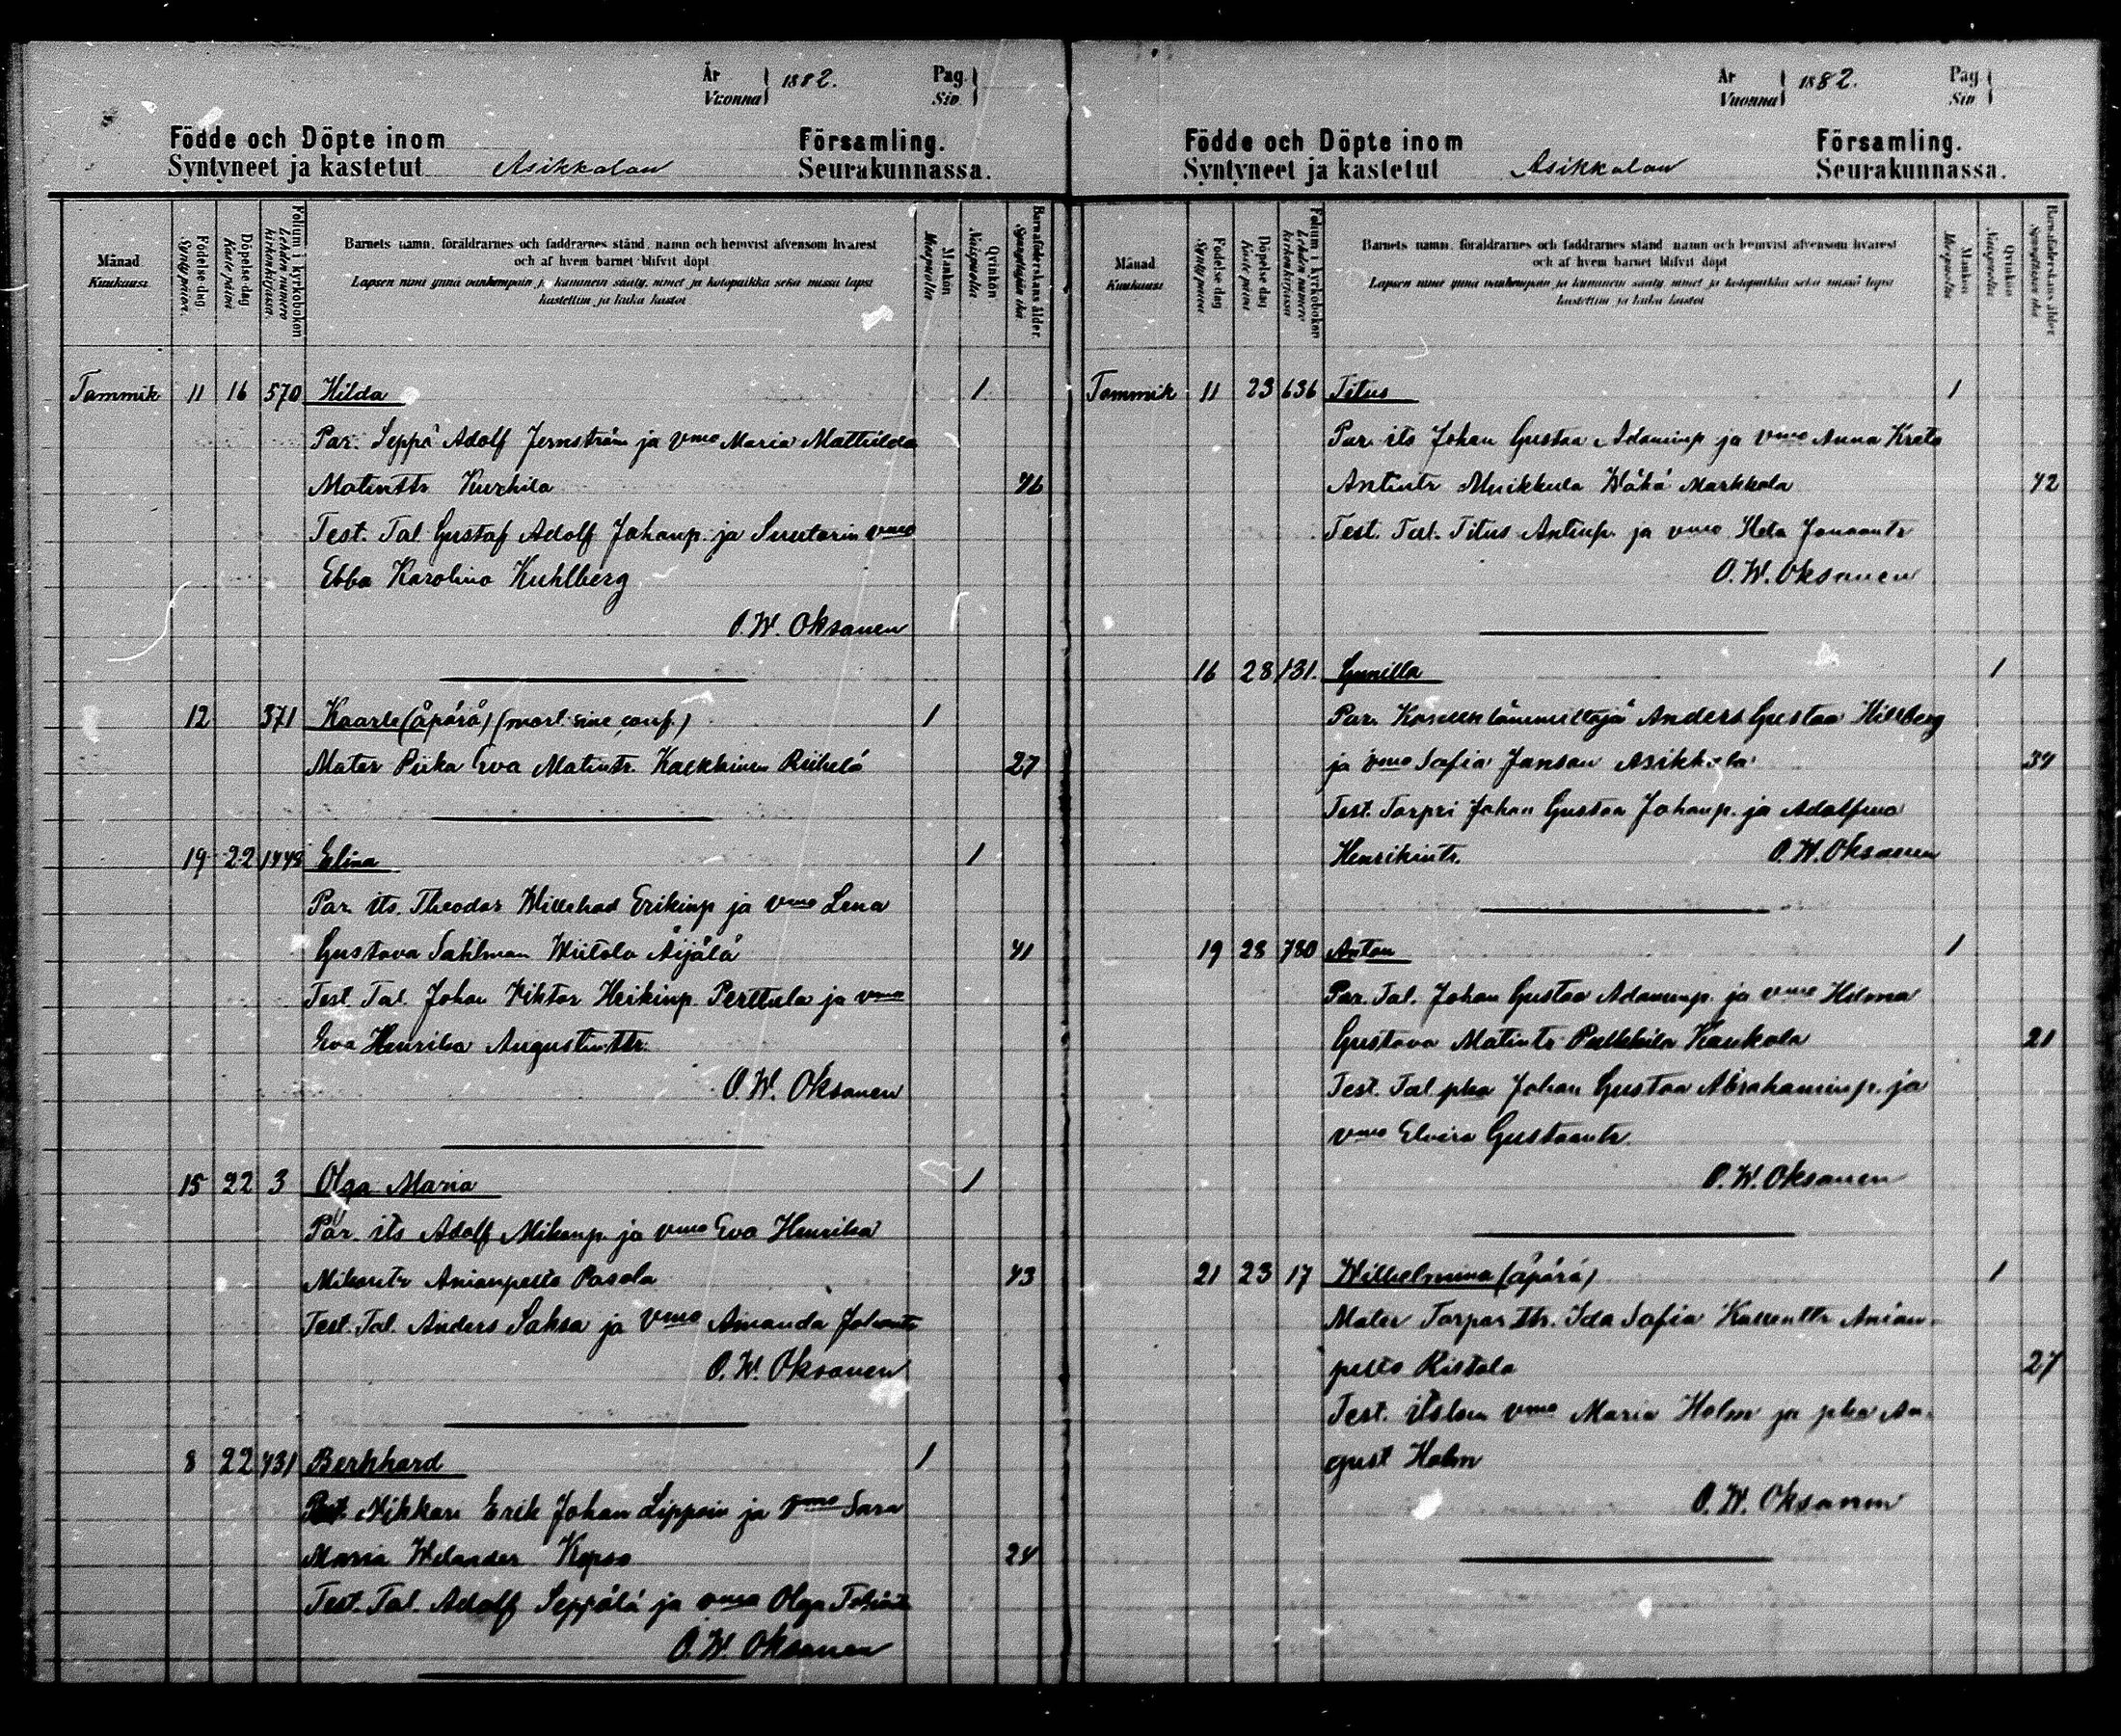 År
Vuonna 1882.
Pag.
Siv.
Födde och Döpte inom Församling.
Syntyneet ja kastetut Asikkalan Seurakunnassa.
Månad
Kuukausi.
Födelse-dag
Syntypäivä.
Döpelse-dag
Kastepäivä
Folium i kyrkoboken
Lehden numero kirkonkirjassa.
Barnets namn, föräldrarnes och faddrarnes stånd, namn och hemvist äfvensom hvarest
och af hvem barnet blifvit döpt
Lapsen nimi ynnä vanhempain ja kummein sääty, nimet ja kotopaikka sekä missä lapsi
kastettiin ja kuka kastoi
Mankön
Miespuolia
Qvinkön
Naispuolia
Barnaföderskans ålder
Synnyttäjän ikä
Tammik 11 16 570 Hilda 1
Par. Seppä Adolf Jernström ja vmo Maria Mathilda
Matintr Kurhila 46
Test. Tal Gustaf Adolf Johanp. ja Suutarin vmo
Ebba Karolina Kuhlberg
O. W. Oksanen
12 371 Kaarle (äpärä) (mort. sine conf.) 1
Mater Piika Eva Matintr. Kalkkinen Riihelä 27
19 22 1448 Elina 1
Par. its. Theodor Willehad Erikinp ja vmo Lena
Gustava Sahlman Wiitola Äijälä 41
Test. Tal. Johan Viktor Heikinp. Perttula ja vmo
Eva Henrika Augustintr.
O. W. Oksanen
15 22 3 Olga Maria 1
Par. its Adolf Mikonp. ja vmo Eva Henrika
Mikontr Anianpelto Pasola 43
Test. Tal. Anders Saksa ja vmo Amanda Johantr
O. W. Oksanen
8 22 431 Bernhard 1
Nikkari Erik Johan Lippoin ja vmo Sara
Maria Welander Kopso 24
Test. Tal. Adolf Seppälä ja vmo Olga
O. W. Oksanen
År
Vuonna 1882.
Pag
Siv
Födde och Döpte inom Församling.
Syntyneet ja kastetut Asikkalan Seurakunnassa.
Månad
Kuukausi
Födelse-dag
Syntypäivä
Döpelse-dag
Kastepäivä
Folium i kyrkoboken
Lehden numero kirkonkirjassa
Barnets namn, föräldrarnes och faddrarnes stånd, namn och hemvist äfvensom hvarest
och af hvem barnet blifvit döpt
Lapsen nimi ynnä vanhempain ja kummein sääty, nimet ja kotopaikka sekä missä lapsi
kastettiin ja kuka kastoi
Mankön
Miespuolia
Qvinkön
Naispuolia
Barnaföderskans ålder
Synnyttäjän ikä
Tammik 11 23 636 Titus 1
Par. its Johan Gustaa Adaminp ja vmo Anna Kreta
Antintr Muikkula Wähä Markkola 42
Test. Tal. Titus Antinp. ja vmo Heta
O. W. Oksanen
16 28 131. Gunilla 1
Par. Koneen lämmittäjä Anders Gustaa Hillberg
ja vmo Sofia Janson Asikkala 34
Test. Torpri Johan Gustaa Johanp. ja Adolfina
Henrikintr. O. W. Oksanen
19 28 780 Anton 1
Par. Tal. Johan Gustaa Adaminp. ja vmo Hilma
Gustava Matintr Pulkkila Kaukola 21
Test. Tal. pka Johan Gustaa Abrahaminp. ja
vmo Elvira Gustaantr
O. W. Oksanen
21 23 17 Wilhelmina (äpärä) 1
Mater Torpar ttr. Ida Sofia Kallenttr Anian-
pelto Ristola 27
Test. itslen vmo Maria Holm ja pka Au-
gust Holm
O. W. Oksanen